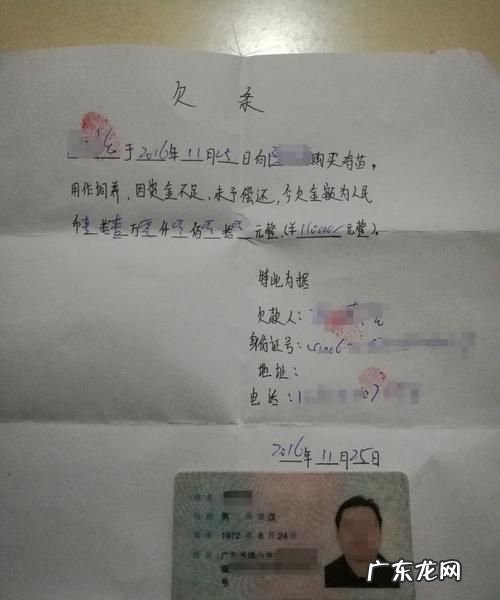 欠条
于2016年11月25日向 购买鸡苗,
用作饲养,因资金不足,未予偿还,今欠金额为人民
币 壹拾壹万零仟零佰零拾零元整,(¥110000元整)。
特此为据
欠款人:
身份证号:
地址:
电话:1
2016年11月25日
姓名
性别 男 民族 汉
出生 1972年8月24日
住址 广东省佛山市
镇
号
广东龙网